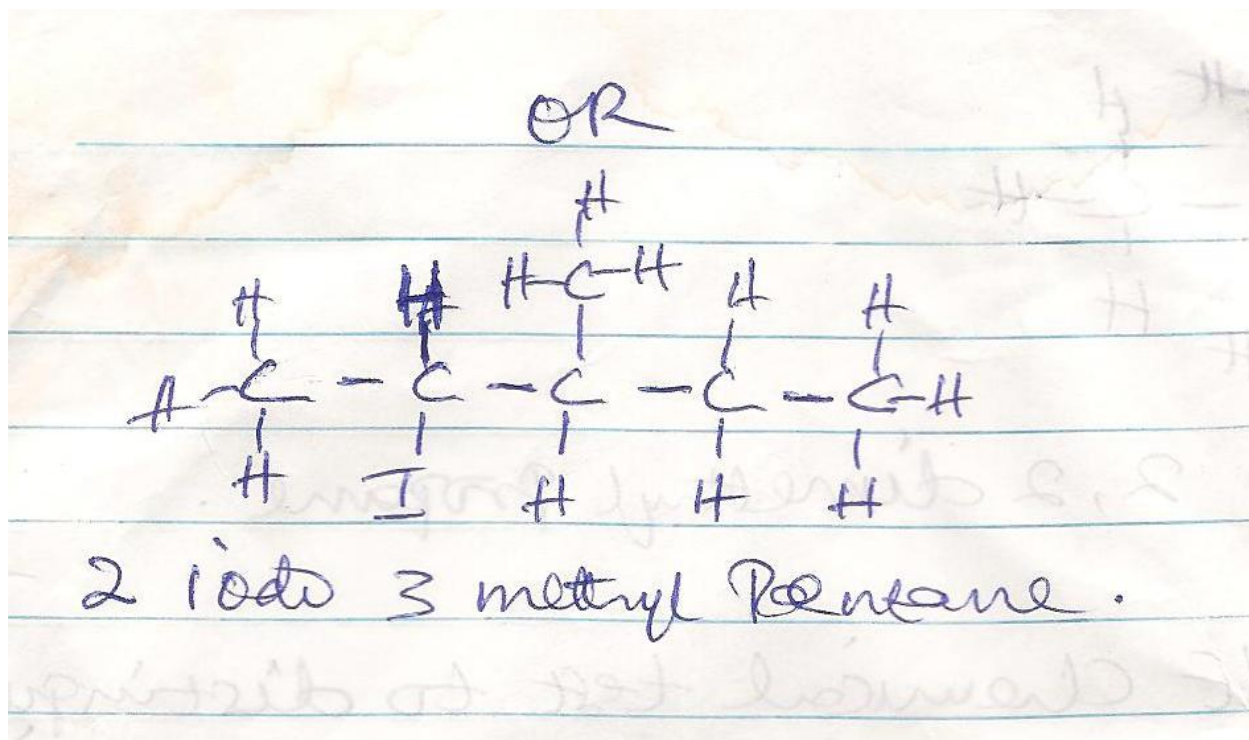 OR
H
H-C-H
H H H H
H-C-C-C-C-C-H
H I H H H
2 iodo 3 methyl Pentane.